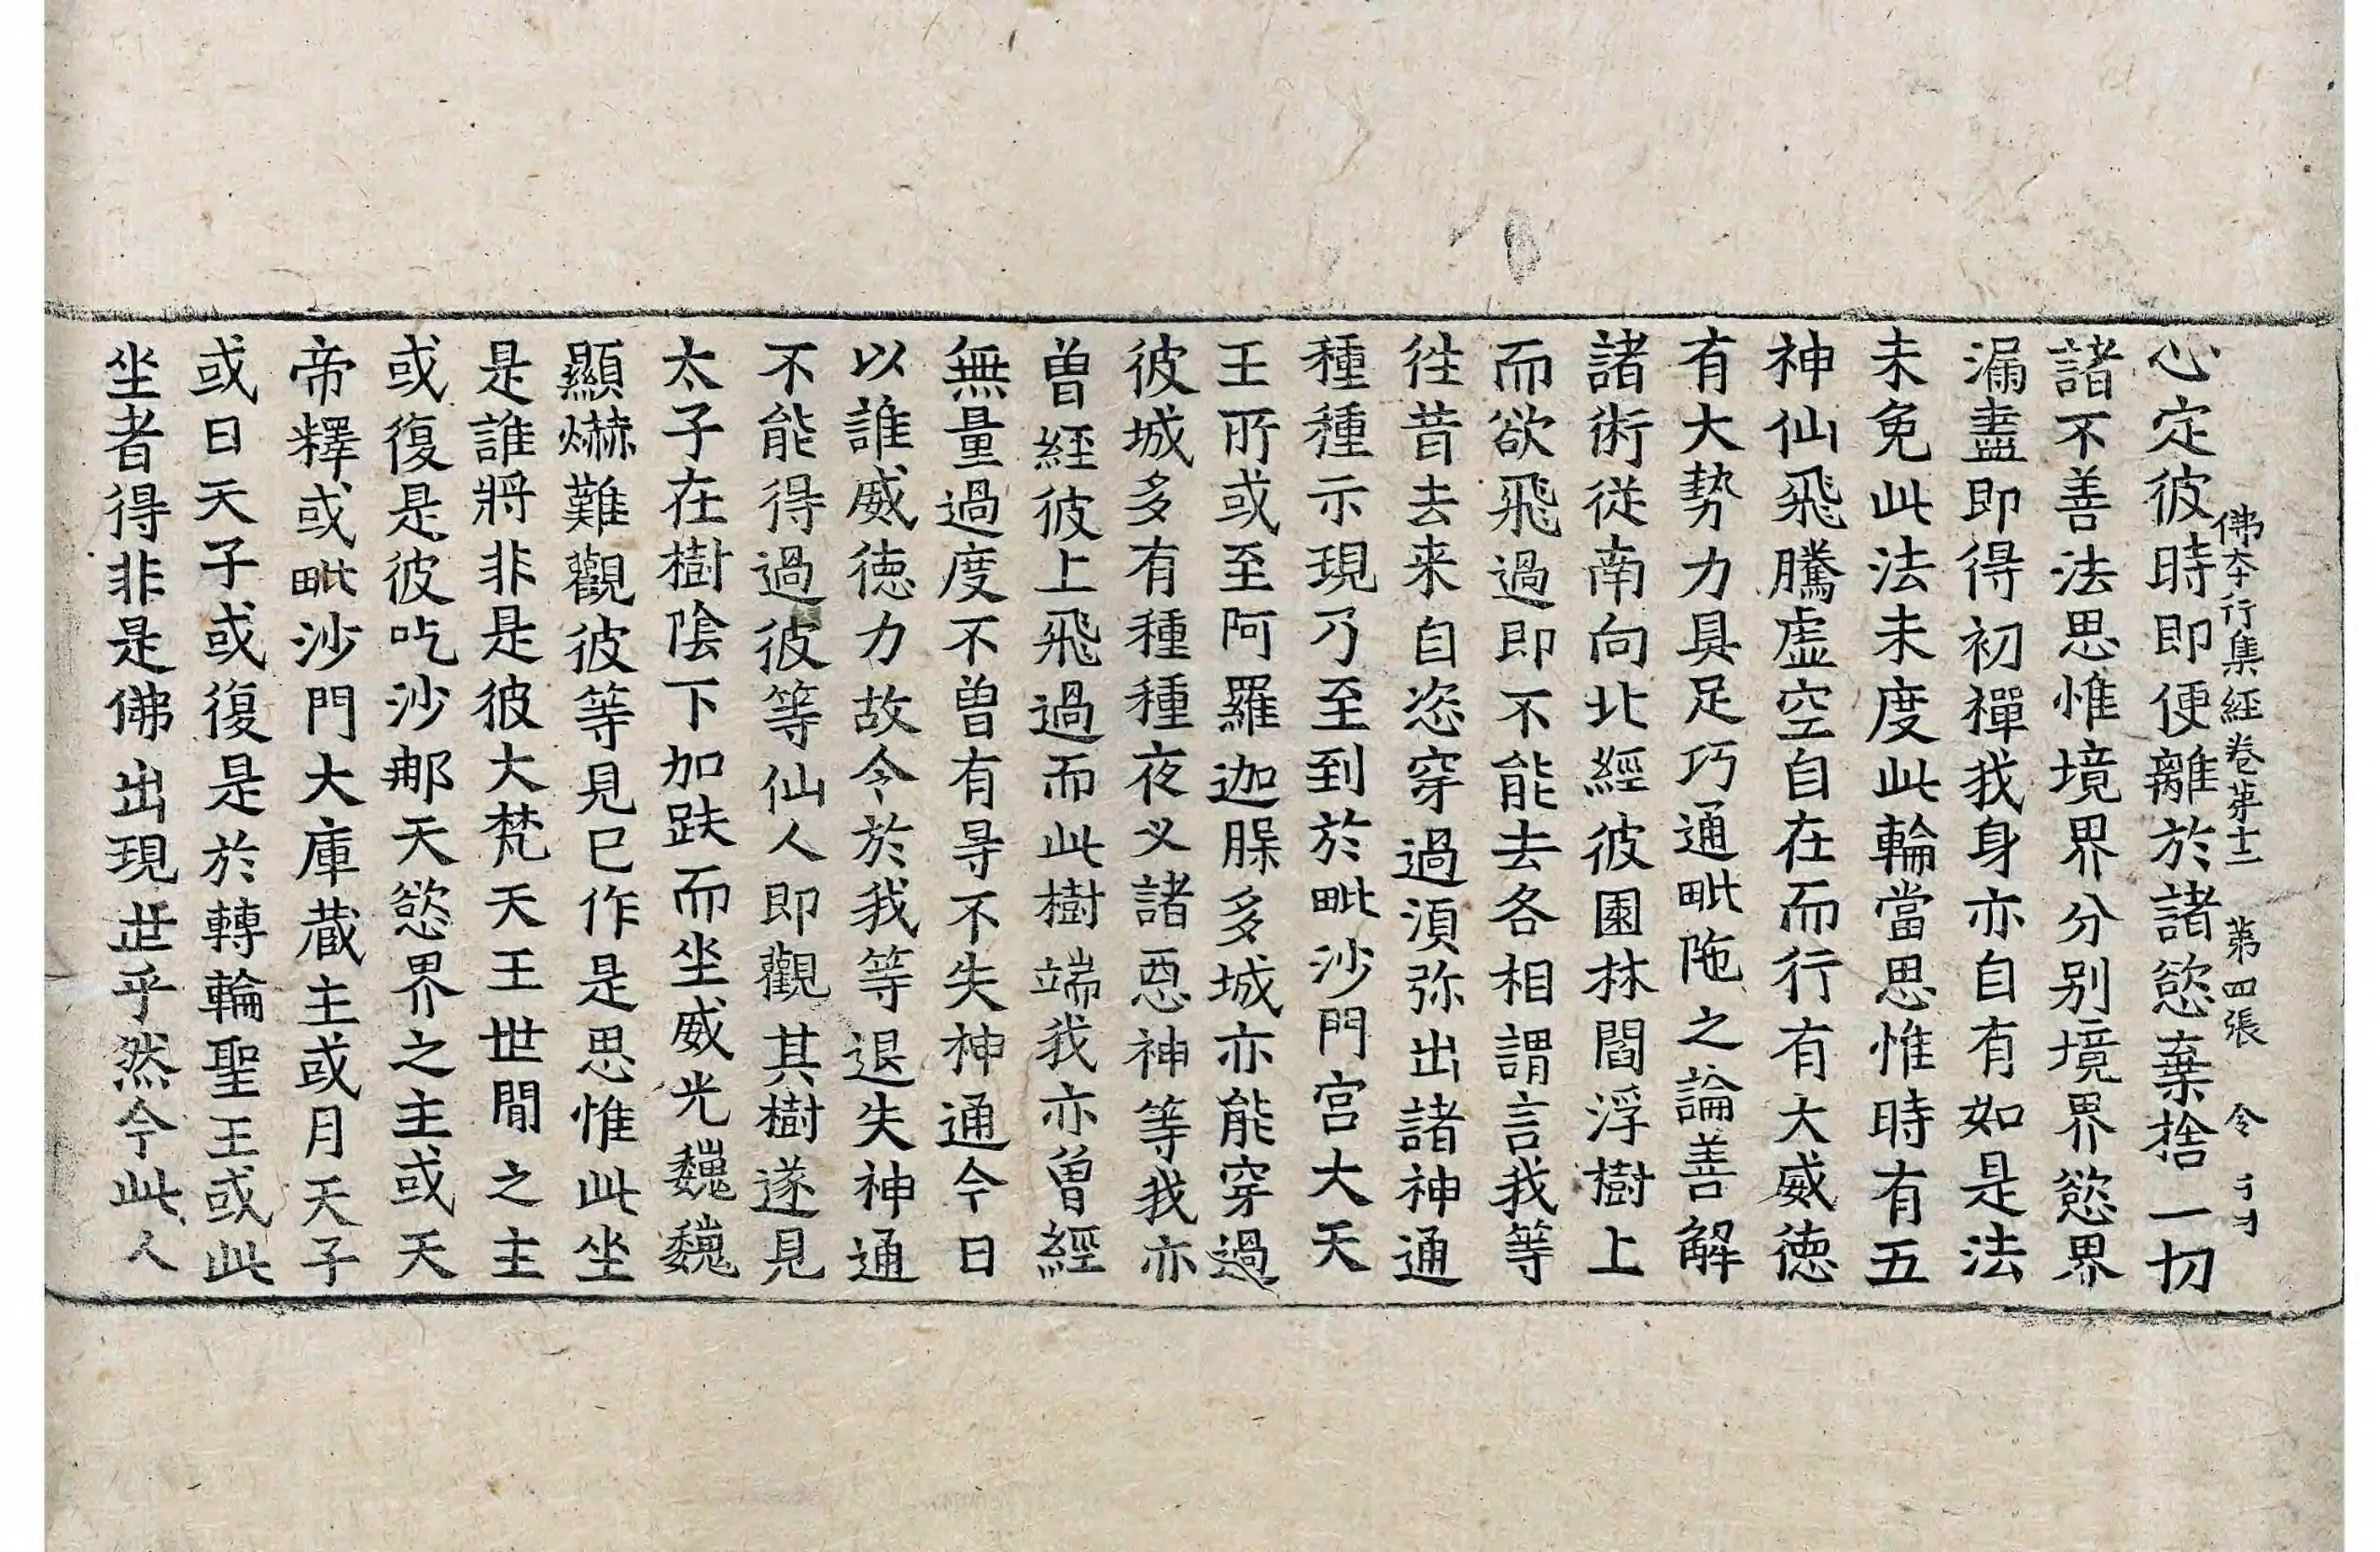 佛本行集經卷第十二　第四張　令
心定彼時即便離於諸慾棄捨一切
諸不善法思惟境界分别境界慾界
漏盡即得初禪我身亦自有如是法
未免此法未度此輪當思惟時有五
神仙飛騰虛空自在而行有大威徳
有大勢力具足巧通毗陁之論善解
諸術従南向北經彼園林閻浮樹上
而欲飛過即不能去各相謂言我等
徃昔去来自恣穿過湏弥出諸神通
種種示現乃至到於毗沙門宫大天
王所或至阿羅迦䐗多城亦能穿過
彼城多有種種夜叉諸惡神等我亦
曽經彼上飛過而此樹端我亦曽經
無量過度不曽有㝵不失神通今日
以誰威徳力故令於我等退失神通
不能得過彼等仙人即觀其樹遂見
太子在樹隂下加趺而坐威光巍巍
顯爀難觀彼等見已作是思惟此坐
是誰將非是彼大梵天王世間之主
或復是彼吃沙那天慾界之主或天
帝釋或毗沙門大庫蔵主或月天子
或日天子或復是於轉輪聖王或此
坐者得非是佛出現世乎然今此人